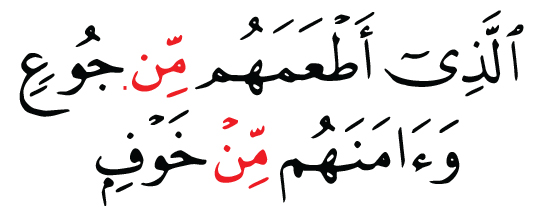 ٱلَّذِىٓ أَطْعَمَهُم مِّن جُوعٍ
وَءَامَنَهُم مِّنْ خَوْفٍ